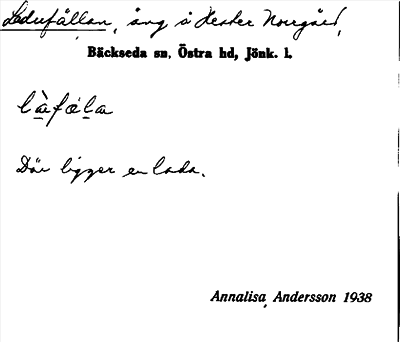 Ladufållan, äng å Hester Norrgård,
Bäckseda sn, Östra hd, Jönk. l.
làfȯla
Där ligger en lada.
Annalisa Andersson 1938